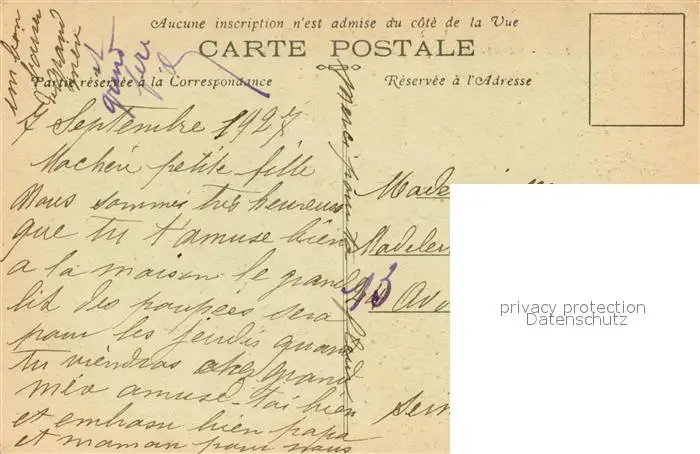 Aucune inscription n'est admise du côté de la Vue
CARTE POSTALE
Partie réservée à la Correspondance
Réservée à l'Adresse
7 Septembre 1927
Ma cheri petite fille
Nous sommes très heureux
que tu t'amuse bien
a la maison le grand
lit des poupees sera
pour les jeudis quand
tu viendras chez grand
mér amuse-toi bien
et embrasse bien papa
et maman pour nous
un bon
baiser
grand
mère
et
grand
père
Merci pour ta
Made
Madelei
13
Av
Sein
privacy protection
Datenschutz